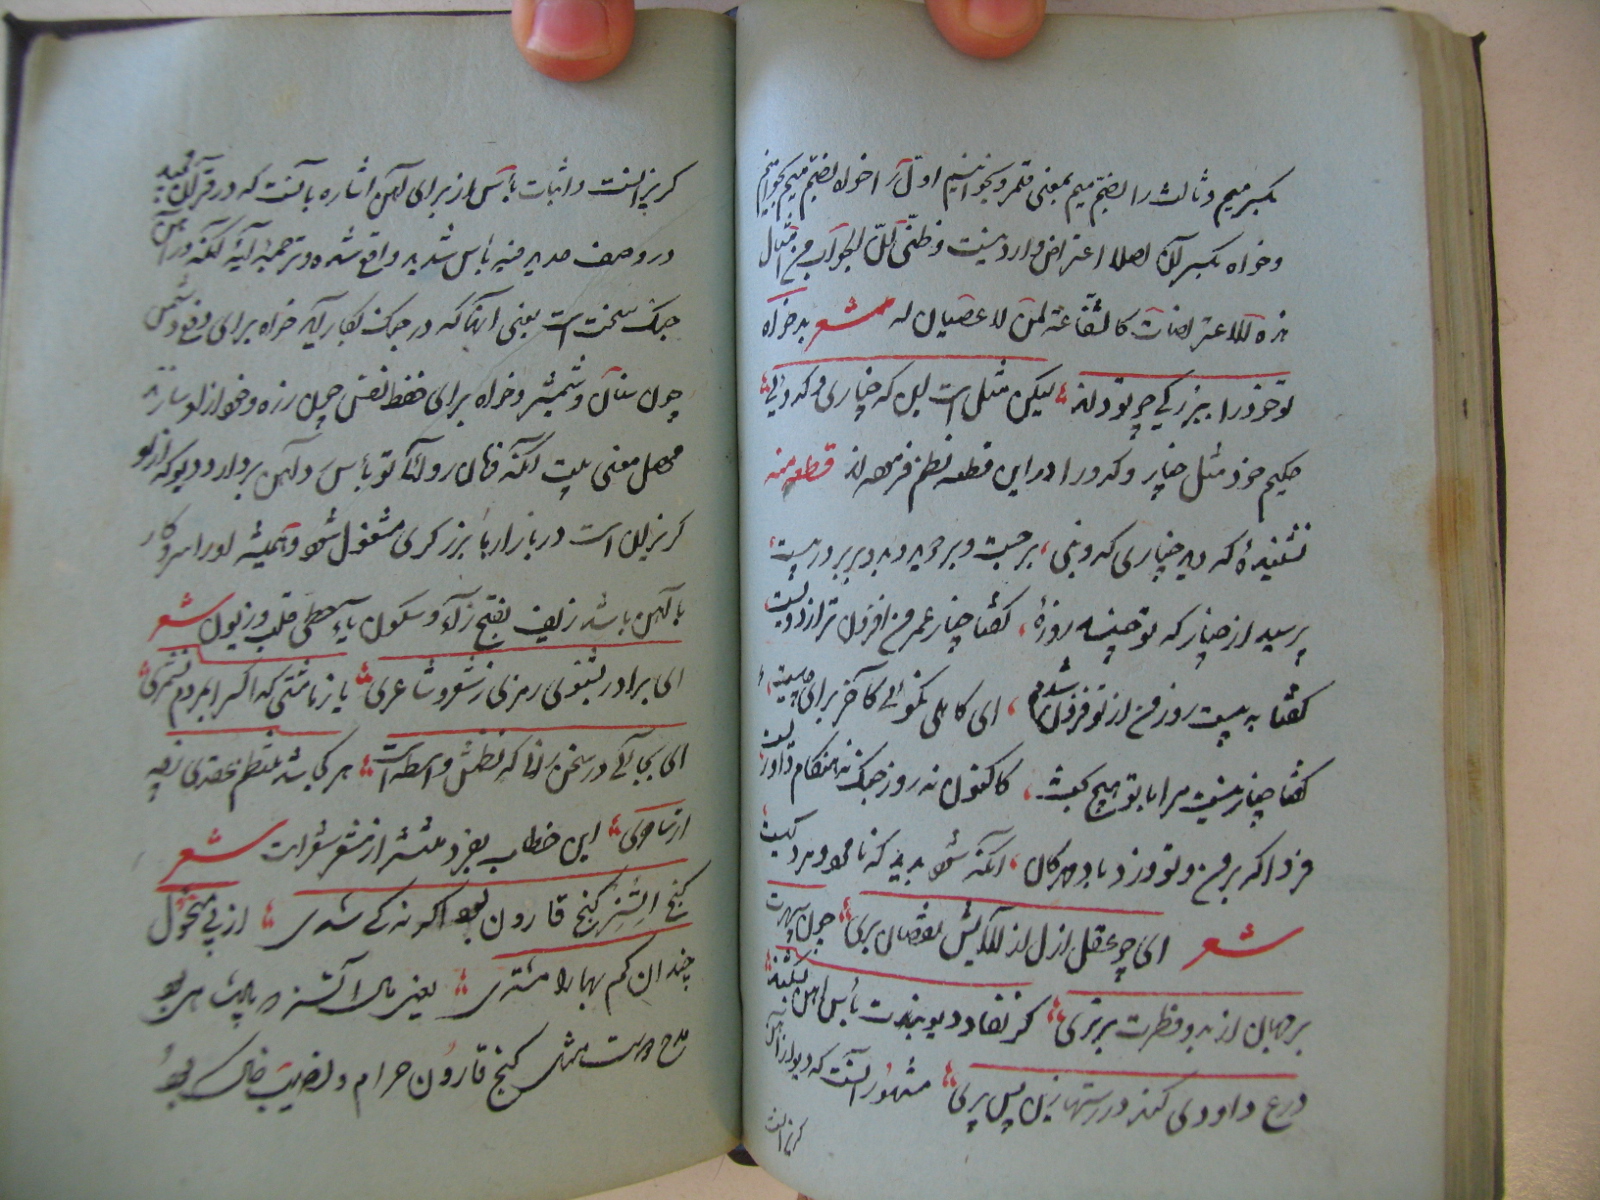 بکسر میم و ثالث را بضم میم بمعنی قمر و بخوانیم اول را خواه بضم میم بخوانیم
و خواه بکسر آن اصلا اعتراض وارد نیست و ظنی ان الجواب من امثال
هذه الاعتراضات کالشفاعة لمن لا عصیان له شعر بدخواه
تو خود را ببزرگی چو تو داند لیکن مثل است این که چناری و کدوئی
حکیم خود مثل چنار و کدو را در این قطعه نظم فرموده اند قطعه منه
نشنیدهٔ که زیر چناری کدو بنی برجست و بر دوید برو بر بروز بیست
پرسید از چنار که تو چند روزهٔ گفتا چنار عمر من افزون تر از دویست
گفتا به بیست روز من از تو فزون شدم ای کاهلی بگوی که آخر برای چیست
گفتا چنار نیست مرا با تو هیچ بحث کاکنون نه روز جنگ نه هنگام داوریست
فردا که بر من و تو وزد باد مهرکان آنکه شود پدید که نامرد و مرد کیست
شعر ای چو عقل از اول از آلایش نقصان بری چون سپهرت
بر جهان از بدو فطرت برتری گر نفاد دیو بندت باس آهن بشکند
درع داودی کنند در رستها زین پس پری مشهور آنست که دیو از آهن
گریزانست
گریزانست و اثبات باس از برای آهن اشاره بآنست که در قرآن مجید
در وصف حدید فیه باس شدید واقع شده و ترجمهٔ آیه آنکه در آهن
جنگ سخت است یعنی آنها که در جنگ بکار آید خواه برای دفع دشمن
چون سنان و شمشیر و خواه برای حفظ نفس چون زره و خود از او سازند
محصل معنی بیت آنکه فرمان روانی تو باس از آهن بردارد و دیو که از او
گریزان است در بازارها بزرکری مشغول شود و همیشه او را سر و کار
با آهن باشد زیف بفتح زاء و سکون یاء حطی قلب و زیون شعر
ای برادر بشنوی رمزی ز شعر و شاعری یا ز ما مشتی که اکس را بمردم نشمری
ای بجائی در سخن دانی که نظمش واسطه است هر کی باشد منتظم عقدی نه
از ساحری این خطاب بفرد منتشر از شعر شعرا است شعر
گنج اتسز گنج قارون بود اگر نه کی شدی از پی منحول
چندان کم بها را مشتری یعنی مال اتسز در بابت هر بود
مدح درست مثل گنج قارون حرام و نصیب خاک بود